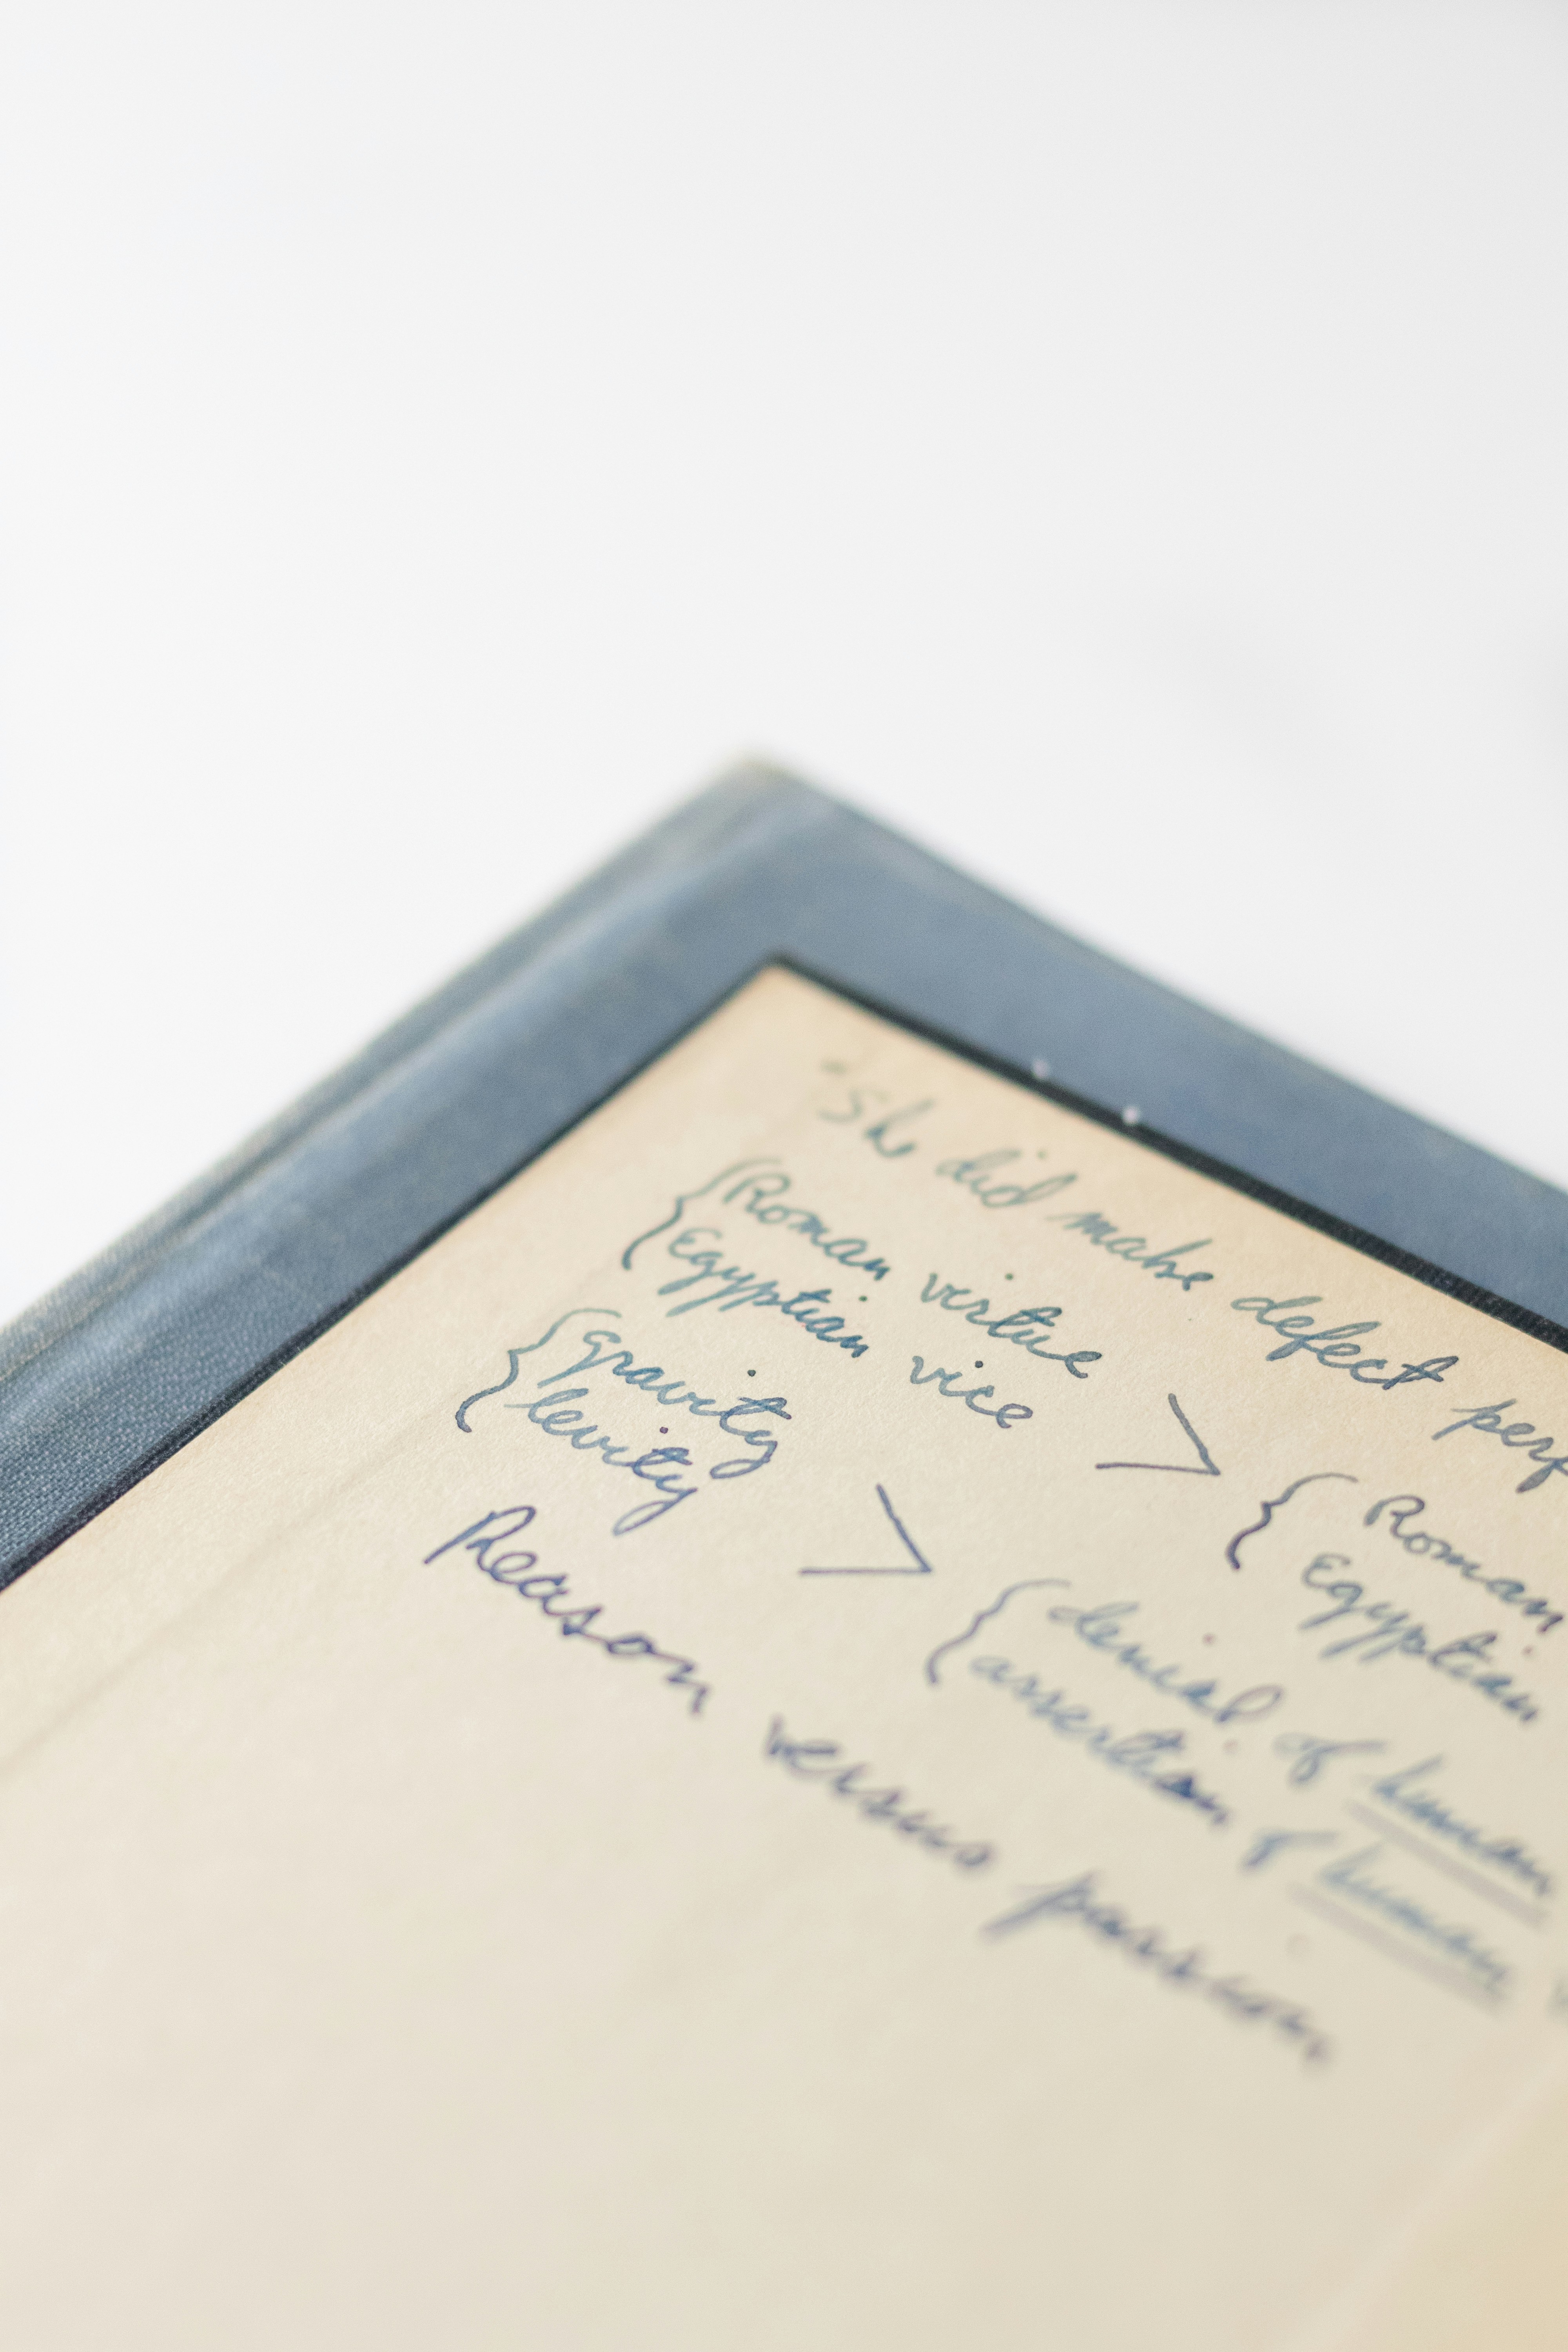 "She did make defect perf
{ Roman virtue
{ Egyptian vice > { Roman
{ Egyptian
{ gravity
{ levity > { denial of human
{ assertion of human
Reason versus passion